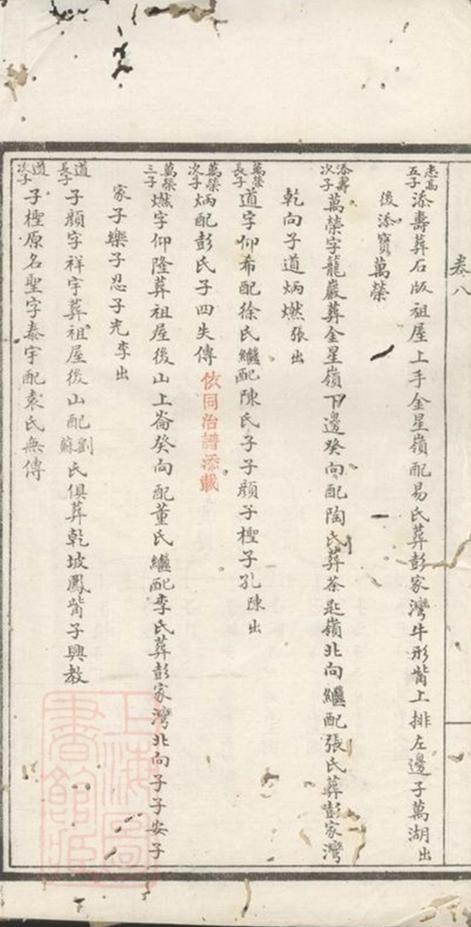 卷八
志高五子 添壽葬石版祖屋上手金星嶺配易氏葬彭家灣牛形觜上排左邊子萬湖出
後添寶萬榮
添壽次子 萬榮字龍巖葬金星嶺下邊癸向配陶氏葬茶匙嶺北向繼配張氏葬彭家灣
乾向子道炳燃張出
萬榮長子 道字仰希配徐氏繼配陳氏子子顏子檉子孔陳出
萬榮次子 炳配彭氏子四失傳 依同治譜添載
萬榮三子 燃字仰隆葬祖屋後山上崙癸向配董氏繼配李氏葬彭家灣北向子子安子
家子樂子忍子光李出
道長子 子顏字祥宇葬祖屋後山配劉蘇氏俱葬乾坡鳳觜子興教
道次子 子檉原名聖字泰宇配袁氏無傳
上海圖書館藏